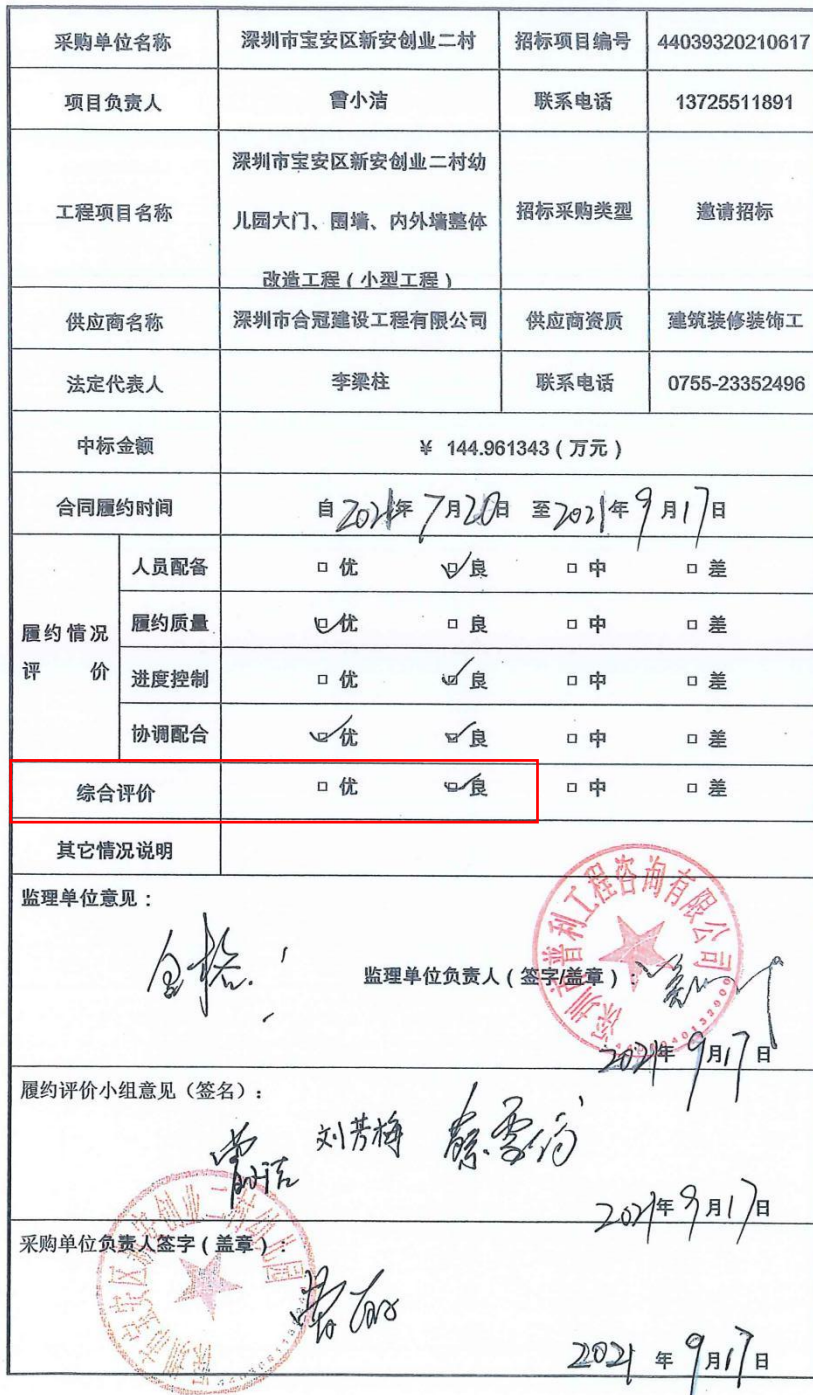 采购单位名称 深圳市宝安区新安创业二村 招标项目编号 44039320210617
项目负责人 曾小洁 联系电话 13725511891
深圳市宝安区新安创业二村幼
工程项目名称 儿园大门、围墙、内外墙整体 招标采购类型 邀请招标
改造工程(小型工程)
供应商名称 深圳市合冠建设工程有限公司 供应商资质 建筑装修装饰工
法定代表人 李梁柱 联系电话 0755-23352496
中标金额 ¥ 144.961343(万元)
合同履约时间 自2021年7月20日 至2021年9月17日
人员配备 □ 优 ☑ 良 □ 中 □ 差
履约情况 履约质量 ☑ 优 □ 良 □ 中 □ 差
评 价 进度控制 □ 优 ☑ 良 □ 中 □ 差
协调配合 ☑ 优 ☑ 良 □ 中 □ 差
综合评价 □ 优 ☑ 良 □ 中 □ 差
其它情况说明
监理单位意见:
合格!
监理单位负责人(签字/盖章):
深圳市普利工程咨询有限公司
2021年9月17日
履约评价小组意见(签名):
曾小洁 刘芳梅
2021年9月17日
采购单位负责人签字(盖章):
深圳市宝安区新安创业二村幼儿园
2021年9月17日